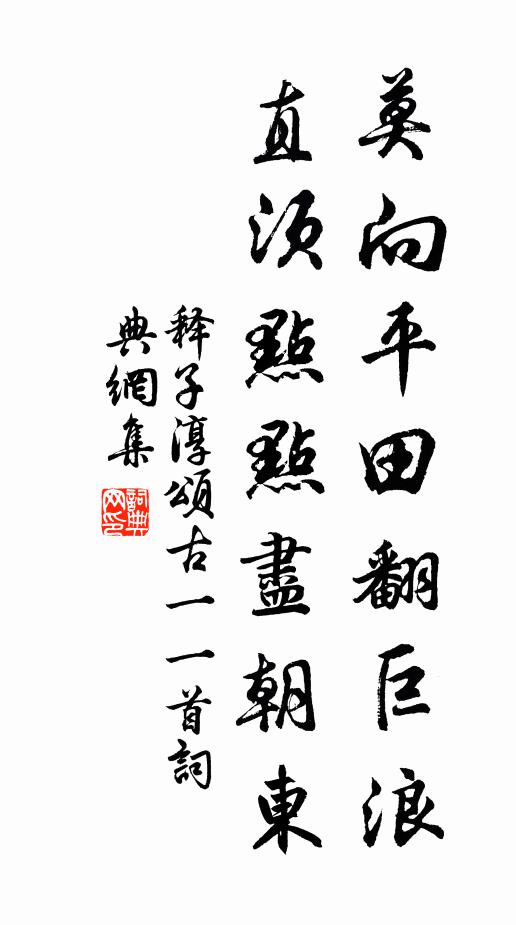 莫向平田翻巨浪
直須點點盡朝東
释子淳頌古一一首詞
典網集
詞典網印